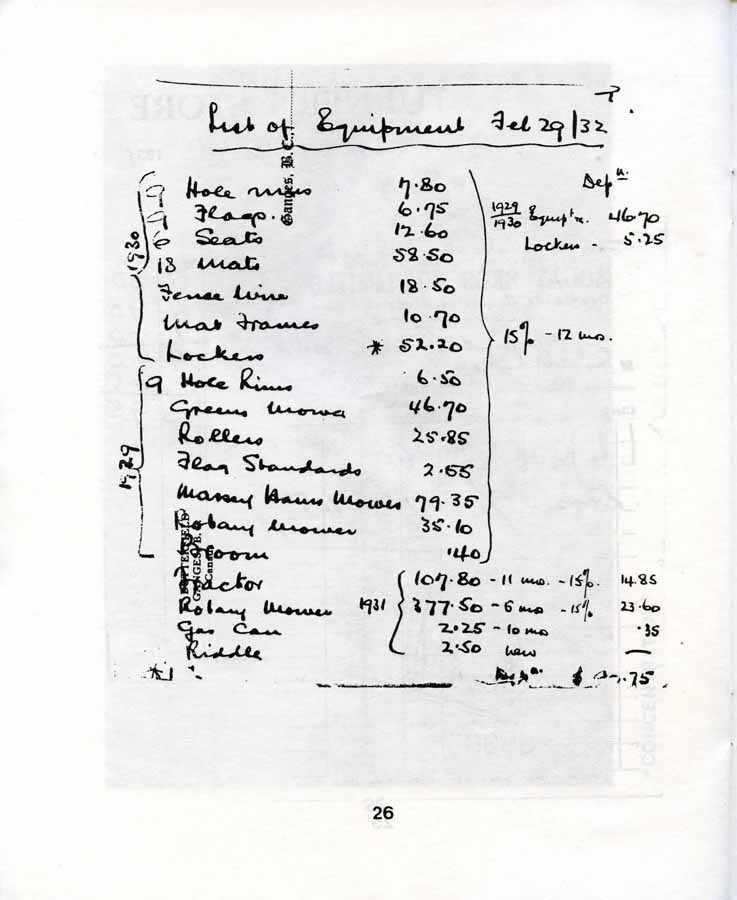 List of Equipment Feb 29/32
Ganges, B.C.,
Depn.
1930
9 Hole rims 7.80
9 Flags. 6.75
6 Seats 12.60
18 Mats 58.50
Fence Wire 18.50
Mat Frames 10.70
Lockers * 52.20
1929/1930 Equipt. 46.70
Lockers - 5.25
15% - 12 mo.
1929
9 Hole Rims 6.50
Greens Mower 46.70
Rollers 25.85
Flag Standards 2.55
Massey Harris Mower 79.35
Rotary Mower 35.10
Broom .40
GANGES, B.
Canada
Tractor 107.80 - 11 mo. - 15%. 14.85
Rotary Mower 1931 377.50 - 6 mo - 15% 23.60
Gas Can 2.25 - 10 mo .35
Riddle 2.50 new —
Depn. $ .75
26